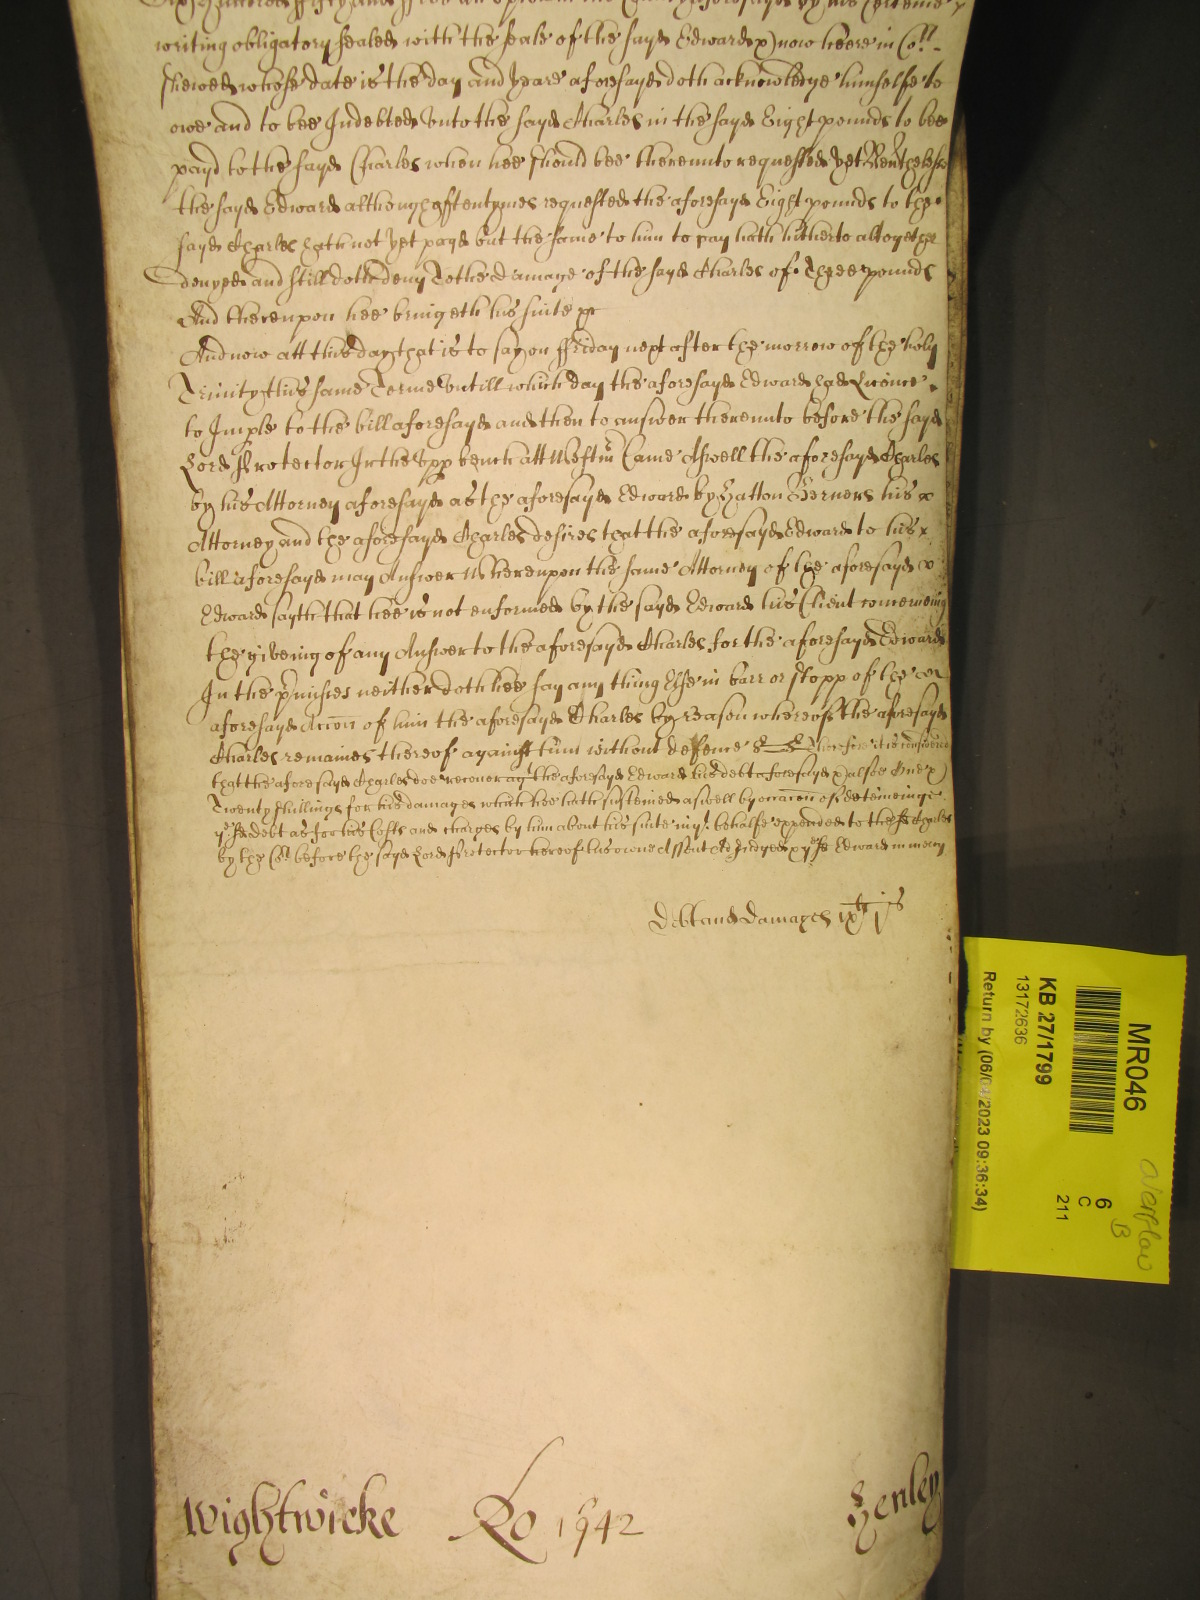 writing obligatory sealed with the seale of the sayd Edward now heere in Cort
shewed whose date is the day and yeare aforesayd doth acknowledge himselfe to
owe and to bee Indebted unto the sayd Charles in the sayd Eight pounds to bee
payd to the sayd Charles when hee should bee thereunto requested yet Nevthelesse
the sayd Edward although oftentymes requested the aforesayd Eight pounds to the
sayd Charles hath not yet payd but the same to him to pay hath hitherto altogether
denyed and still doth deny To the damage of the sayd Charles of Three pounds
And thereupon hee bringeth his suite &c
And now att this day that is to say on ffriday next after the morrow of the holy
Trinity this same Terme untill which day the aforesayd Edward had Licence
to Imple to the bill aforesayd and then to answer thereunto before the sayd
Lord Protector In the Upp bench att Westmr Came Aswell the aforesayd Charles
by his Attorney aforesayd as the aforesayd Edward by Hatton his
Attorney and the aforesayd Charles desires that the aforesayd Edward to his
bill aforesayd may Answer Whereupon the same Attorney of the aforesayd
Edward sayth that hee is not enformed by the sayd Edward his Client concerning
the giveing of any Answer to the aforesayd Charles for the aforesayd Edward
In the pmisses neither doth hee say any thing Else in barr or stopp of the
aforesayd Accon of him the aforesayd Charles by reason whereof the aforesayd
Charles remaines thereof against him without defence Therefore it is considered
that the aforesayd Charles doe recover agt the aforesayd Edward his debt aforesayd alsoe
Twenty shillings for his damages which hee hath susteined aswell by occacon of deteineinge
ye sd debt as for his Costs and charges by him about his suite in yt behalfe expended to the sd Charles
by the Cort before the sayd Lord Protector heereof his owne Assent Adiudged & ye sd Edward in mercy
Debt and damages ixli js
Wightwicke Ro 1942 Henley
MR046
KB 27/1799
13172636
Return by (06/04/2023 09:36:34)
6
C
211
overflow
B